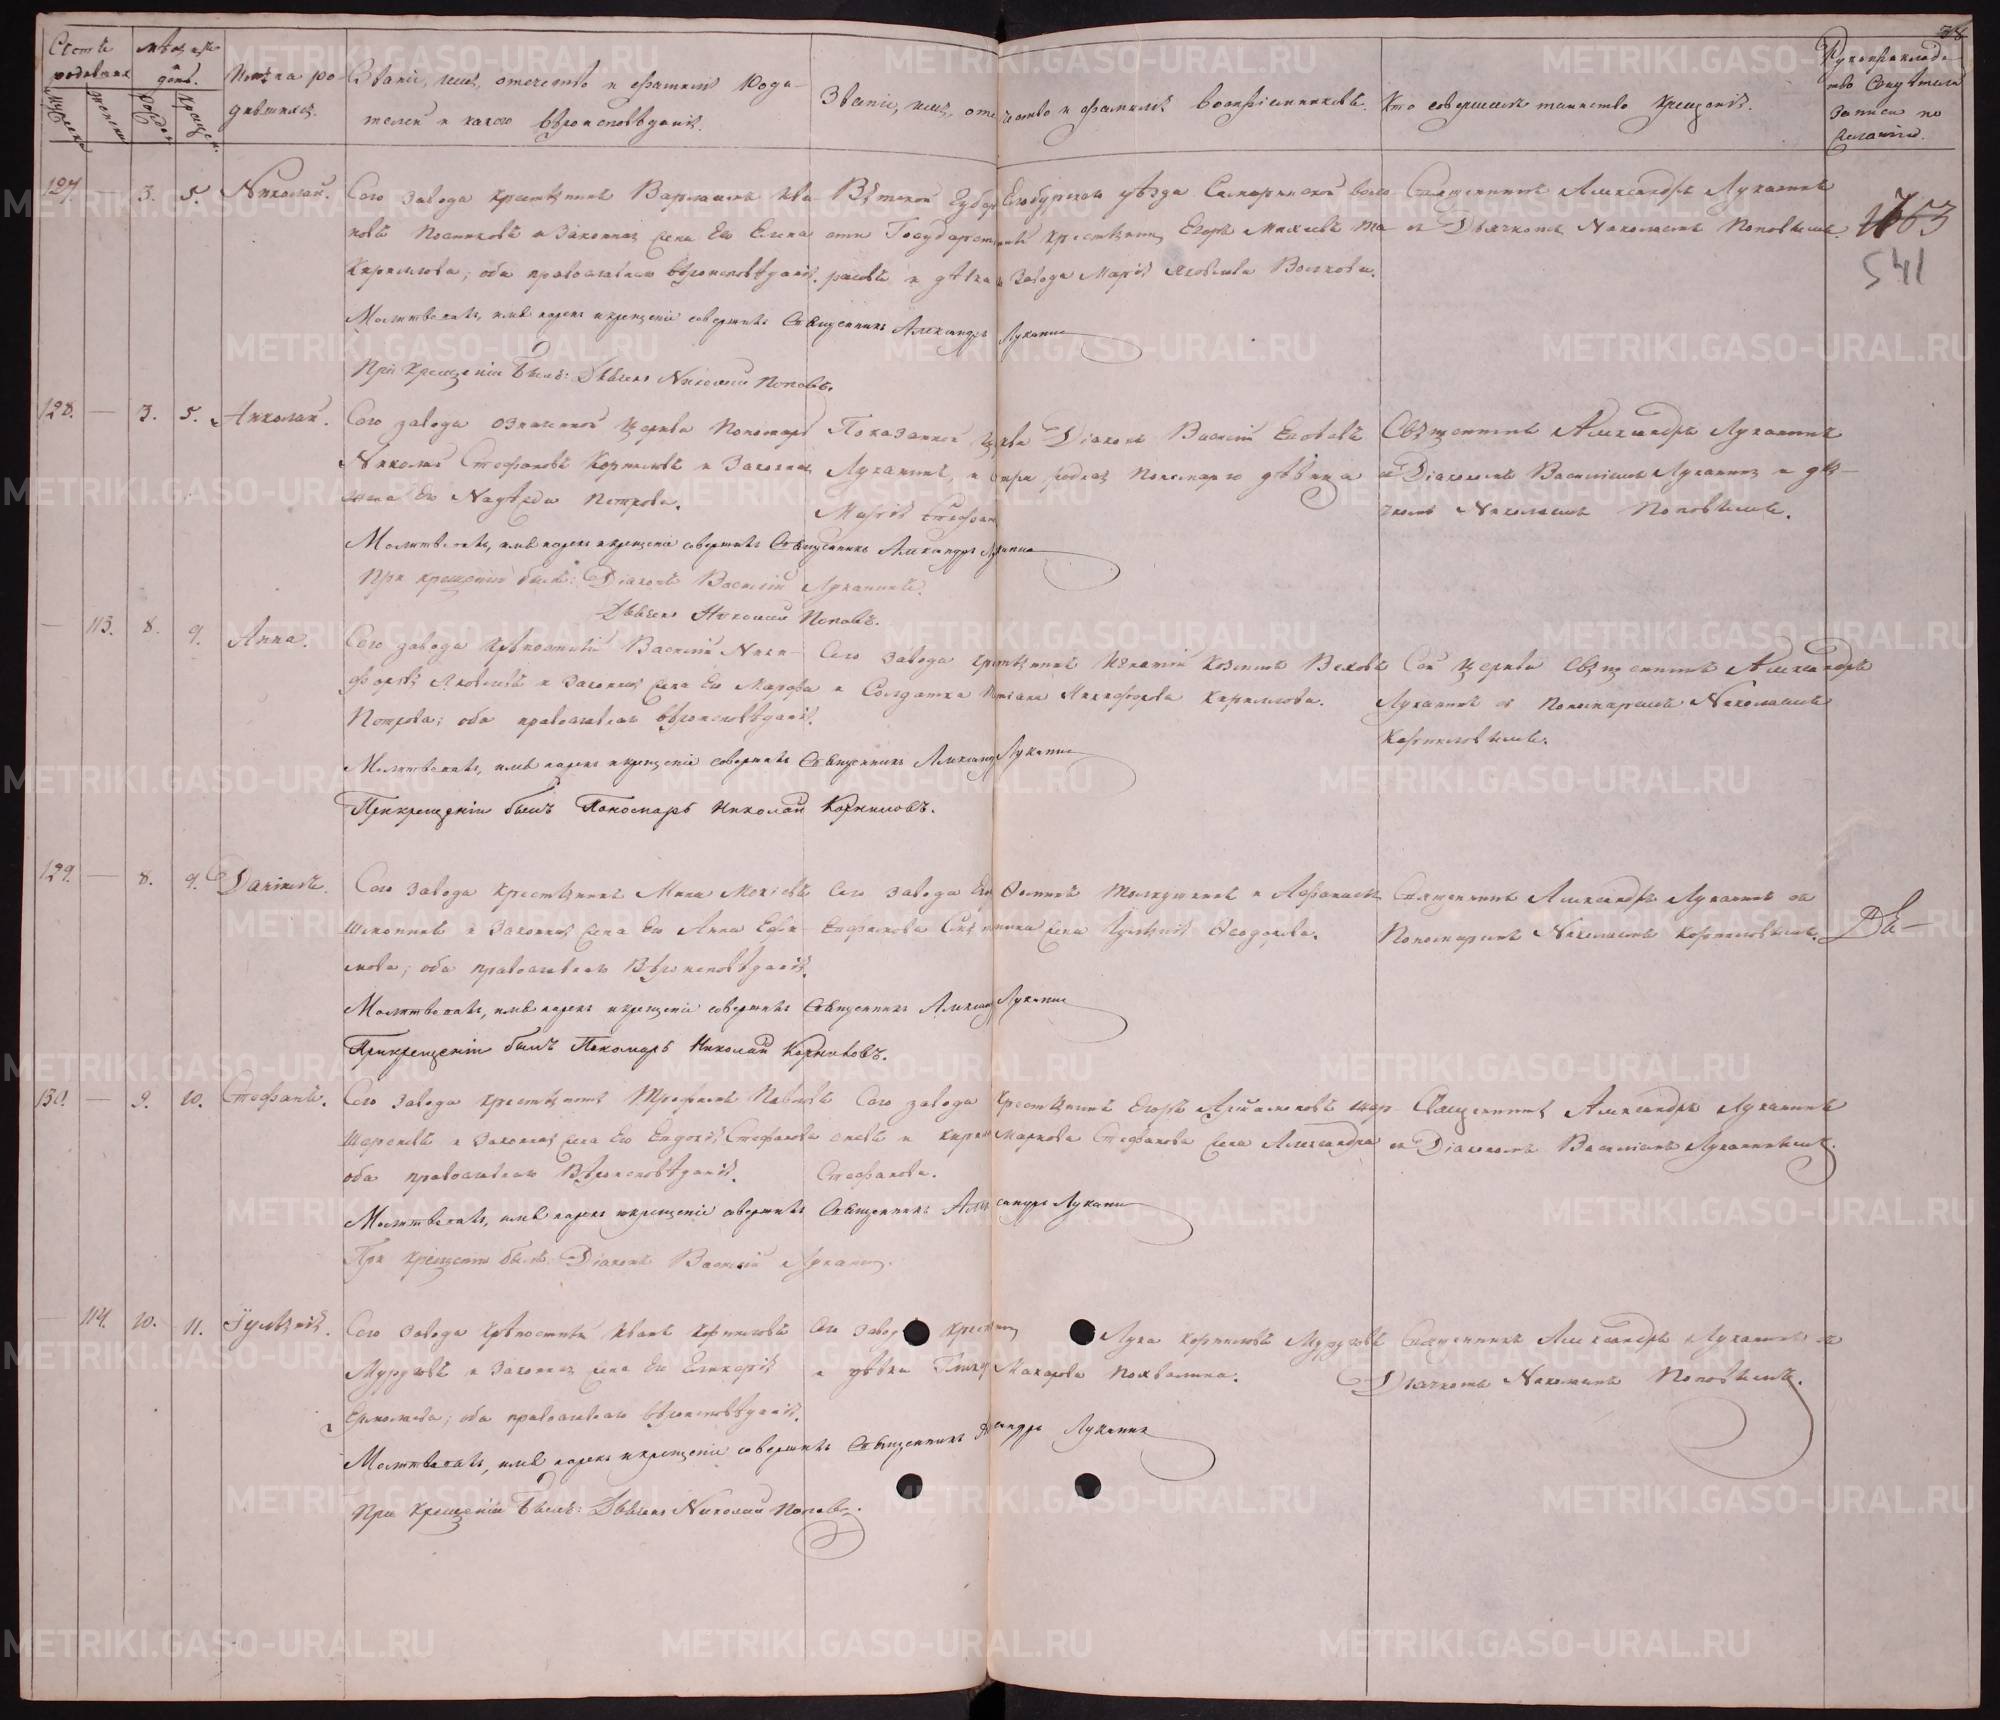 38
Счетъ родившихся
мужеска
женска
Мѣсяцъ и день.
Рожден.
Крещен.
Имѣна родившихся.
Званіе, имя, отечество и фамилія Родителей и какого вѣроисповѣданія.
Званіе, имя, отчество и фамилія воспріемниковъ.
Кто совершалъ таинство крещенія.
Рукоприкладство свидѣтелей записи по желанію.
127. — 3. 5. Николай.
Сего завода крестьянинъ Варлаамъ Ива-
новъ Посниковъ и законная жена Его Елена
Кириллова; оба православнаго вѣроисповѣданія.
Вятской Губер Елабугскаго уѣзда воло-
сти Государствен крестьянинъ Егоръ Михеевъ Та-
расовъ и дѣвка завода Марія Яковлева Волкова.
Священникъ Александръ Луканинъ
съ Дьячкомъ Николаемъ Поповымъ.
1753
541
Молитвовалъ, имя нарекъ и крещеніе совершилъ Священникъ Александръ Луканинъ
При крещеніи былъ: Дьячекъ Николай Поповъ.
128. — 3. 5. Николай.
Сего завода означенной церкви Пономарь
Николай Стефановъ Корниловъ и законная
жена Его Надежда Петрова.
Показанной церкви Діаконъ Василій
Луканинъ, и родная Пономаря дѣвица
Марія Стефан
Священникъ Александръ Луканинъ
съ Діакономъ Василіемъ Луканинымъ и дья-
чкомъ Николаемъ Поповымъ.
Молитвовалъ, имя нарекъ и крещеніе совершилъ Священникъ Александръ Луканинъ
При крещеніи были: Діаконъ Василій Луканинъ.
Дьячекъ Николай Поповъ.
— 113. 8. 9. Анна.
Сего завода крѣпостный Василій Ники-
форовъ Яковлевъ и законная жена Его Марфа
Петрова; оба православнаго вѣроисповѣданія.
Сего завода крестьянинъ Игнатій Козминъ Вековъ
и Солдатка Никифорова Кириллова.
Сей церкви Священникъ Александръ
Луканинъ съ Пономаремъ Николаемъ
Корниловымъ.
Молитвовалъ, имя нарекъ и крещеніе совершилъ Священникъ Александръ Луканинъ
При крещеніи былъ Пономарь Николай Корниловъ.
129. — 8. 9. Даніилъ.
Сего завода крестьянинъ Мина Мокіевъ
и законная жена Его Анна Ефи-
мова; оба православнаго вѣроисповѣданія.
Сего завода и Афанасій
жена Іуліанія Ѳеодорова.
Священникъ Александръ Луканинъ съ
Пономаремъ Николаемъ Корниловымъ.
Молитвовалъ, имя нарекъ и крещеніе совершилъ Священникъ Александръ Луканинъ
При крещеніи былъ Пономарь Николай Корниловъ.
130. — 9. 10. Стефанъ.
Сего завода крестьянинъ Трофимъ Павловъ
и законная жена Его Евдокія Стефанова
оба православнаго вѣроисповѣданія.
Сего завода крестьянинъ Егоръ
и Маркова Стефанова жена Александра
Стефанова.
Священникъ Александръ Луканинъ
съ Діакономъ Василіемъ Луканинымъ.
Молитвовалъ, имя нарекъ и крещеніе совершилъ Священникъ Александръ Луканинъ
При крещеніи былъ Діаконъ Василій Луканинъ.
— 114. 10. 11. Іуліанія.
Сего завода крѣпостный Иванъ Корниловъ
и законная жена Его Гликерія
Ермолаева; оба православнаго вѣроисповѣданія.
Сего завод крестьянинъ Лука Корниловъ
и дѣвка Макарова Похвалина.
Священникъ Александръ Луканинъ съ
Дьячкомъ Николаемъ Поповымъ.
Молитвовалъ, имя нарекъ и крещеніе совершилъ Священникъ Александръ Луканинъ
При крещеніи былъ: Дьячекъ Николай Поповъ.
METRIKI.GASO-URAL.RU